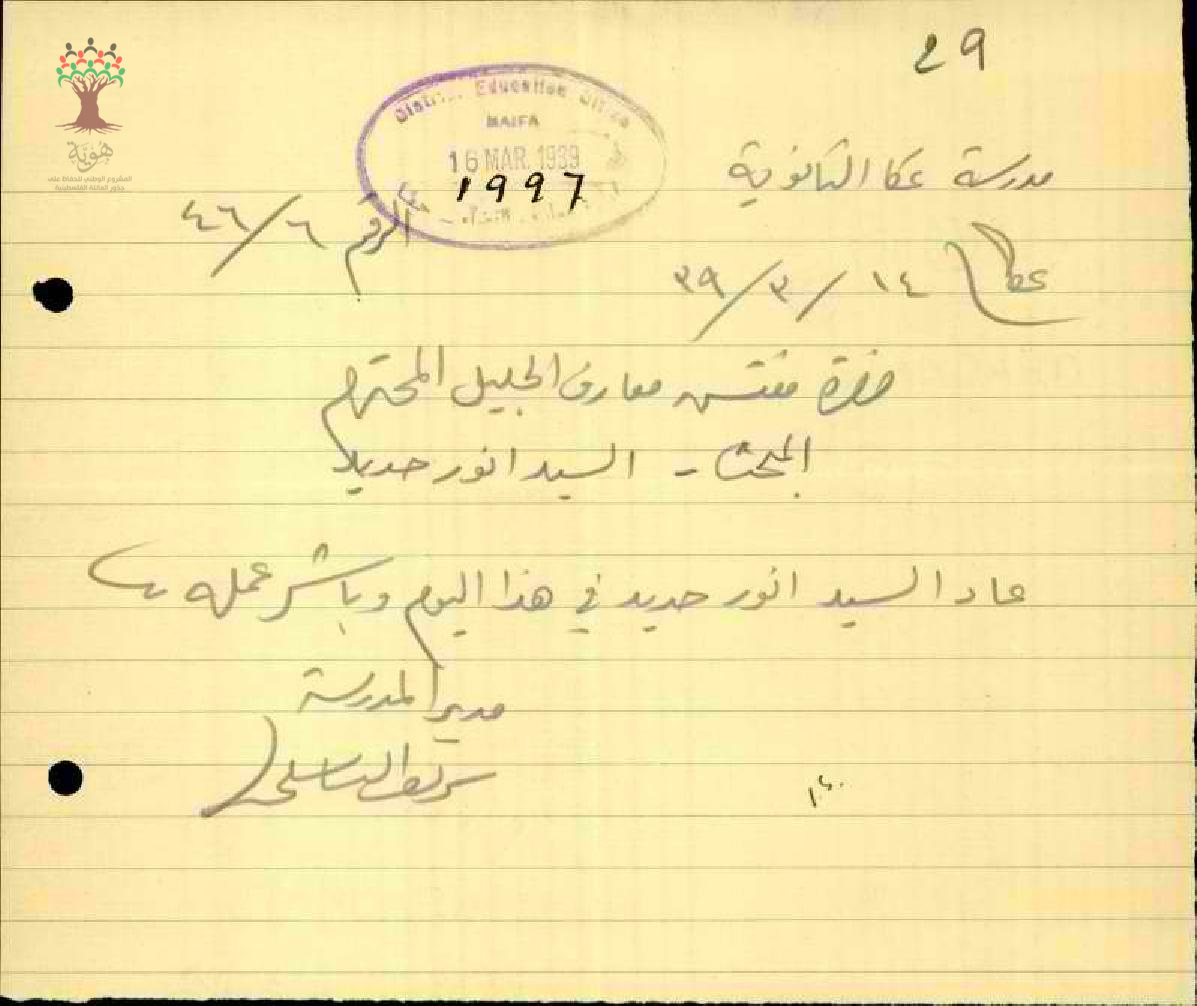 29
هوية
المشروع الوطني للحفاظ على
جذور العائلة الفلسطينية
District Education Office
HAIFA
16 MAR. 1939
1997
مدرسة عكا الثانوية
الرقم ٤٦/٦
عكا ١٤/٣/٣٩
حضرة مفتش معارف الجليل المحترم
المبحث - السيد انور حديد
عاد السيد انور حديد في هذا اليوم وباشر عمله
مدير المدرسة